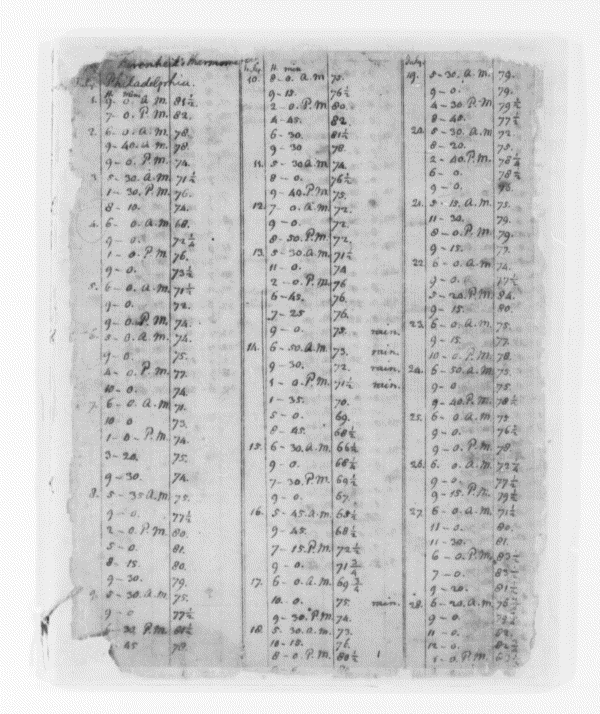 Thermom
Philadelphia.
h. min.
1. 9-0. a.m 81½
7-0. P.M. 82.
2. 6-0. a.m. 78.
9-40. a.m. 78.
9-0. P.M. 74.
3. 5-30. a.m. 71½
1-30. P.M. 76.
8-10. 74.
4. 6-0. a.m 68.
9-0. 72¼
1-0. P.M 76.
9-0. 73½
5. 6-0. a.m 71½
9-0. 72.
9-0. P.M. 74.
6. 5-0. a.m 74.
9-0. 75.
4-0. P.M. 77.
10-0. 74
7. 6-0. a.m 71.
10-0 73.
1-0-P.M. 74.
3-20. 75.
9-30. 74.
8. 5-35 a.m. 75.
9-0. 77½
2-0. P.M 80.
5-0. 81.
8-15. 80.
9-30. 79.
9. 5-30. a.m. 75.
9-0 77½
6-30 P.M 81½
45 78.
July. h. min
10. 8-0. a.m 75.
9-15. 76½
2-0. P.M 80.
4-45. 82.
6-30. 81½
9-30 78.
11. 5-30 a.m 74.
8-0. 76½
9-40. P.M. 75.
12. 7-0. a.m. 72.
9-0. 72
8-50. P.M. 72.
13. 5-30. a.m 71½
11-0. 74
2-0. P.M 76
6-45. 76.
7-25 76.
9-0. 75. min.
14. 6-50. a.m. 73. min.
9-30. 72. min.
1-0. P.M. 71½ min.
1-35. 70.
5-0. 69.
8-45. 68½
15. 6-30. a.m. 66½
9-0. 68½
7-30. P.M. 69½
9-0. 67.
16. 5-45. a.m. 65½
9-45. 68½
7-15. P.M. 72½
9-0. 71¾
17. 6-0. a.m. 69¾
10-0. 75. min.
9-30. P.M. 74.
18. 5-30. a.m. 73.
10-10. 76.
8-0. P.M. 80½
July.
19. 5-30. a.m. 79.
9-0. 79.
4-30 P.M. 79½
8-40. 77½
20. 5-30. a.m. 72.
8-20. 75.
2-40. P.M. 78¼
6-0. 78½
9-0.
21. 5-15. a.m. 75.
11-30. 79.
8-0. P.M. 79.
9-15. 77.
22. 6-0. a.m. 74.
9-0. 77½
5-20. P.M. 84.
9-15. 80.
23. 6-0. a.m. 75.
9-15. 77.
10-0. P.M. 78.
24. 6-50. a.m. 73.
9-0 75.
9-40. P.M. 78½
25. 6-0. a.m 73.
9-0. 76½
9-0. P.M. 78.
26. 6-0. a.m. 72½
9-0. 77½
9-15. P.M. 79½
27. 6-0. a.m 71½
11-0. 80.
11-30. 81.
6-0. P.M. 83½
7-0. 83½
9-20. 81½
28. 6-20. a.m. 76½
9-0.
11-0. 82.
12-0.
P.M.